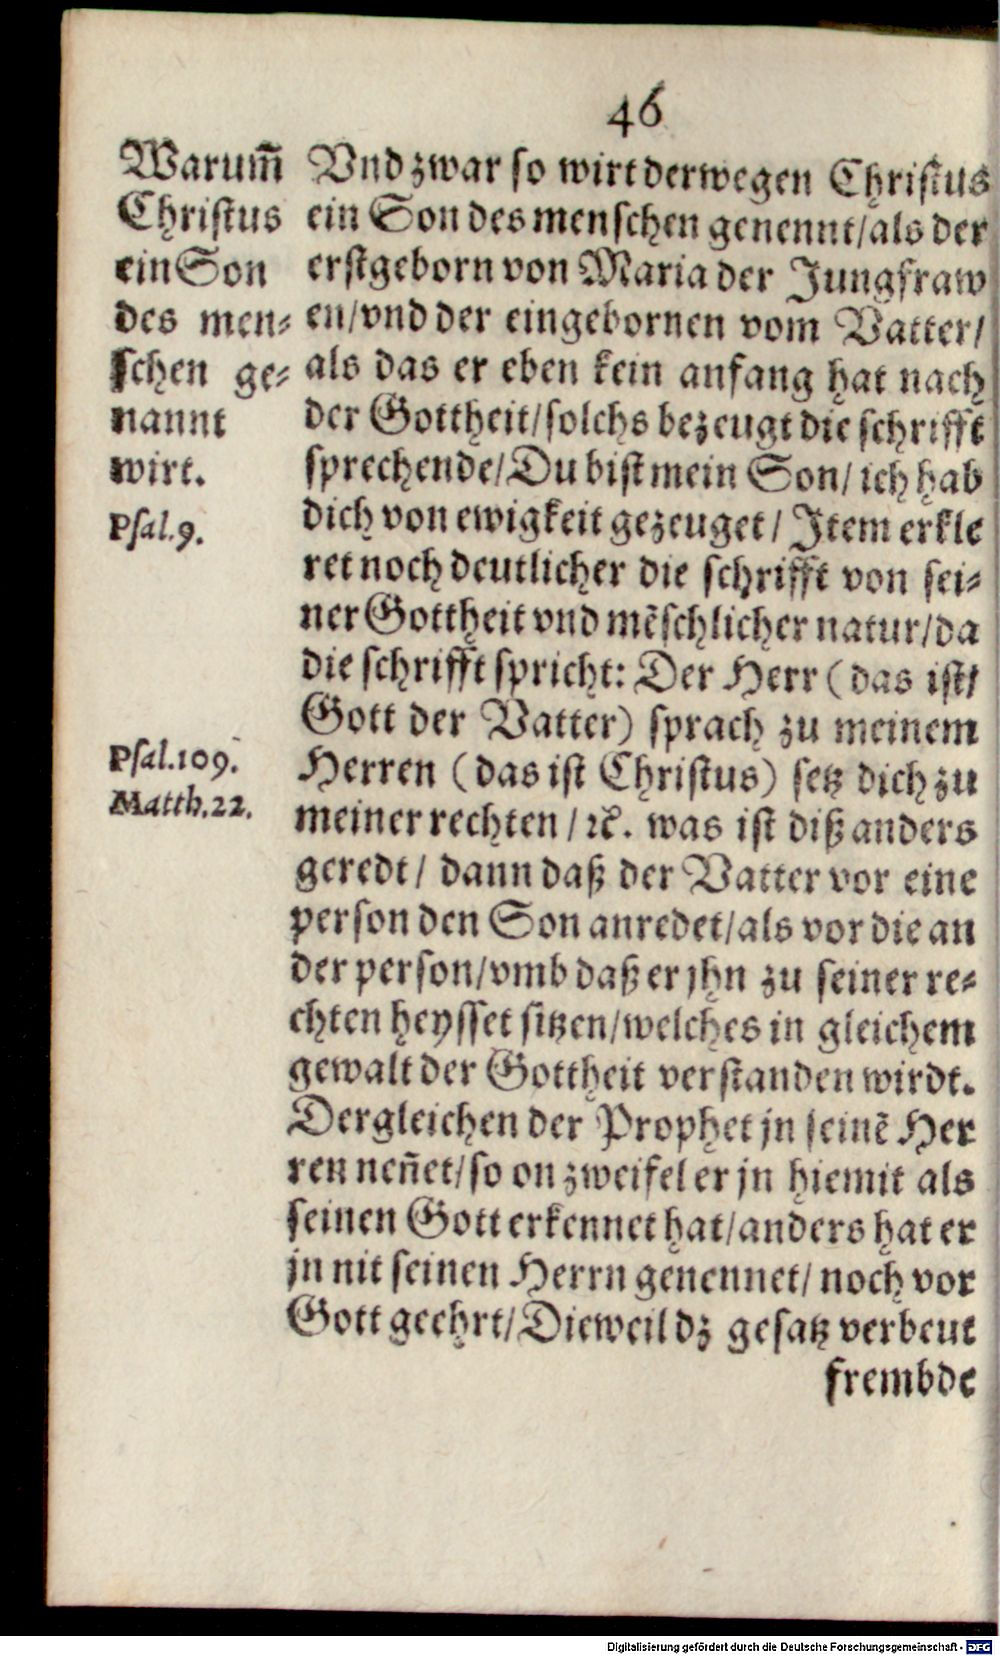 46
Warum̃
Christus
ein Son
des men-
schen ge-
nannt
wirt.
Psal. 9.
Psal. 109.
Matth. 22.
Vnd zwar so wirt derwegen Christus
ein Son des menschen genennt/als der
erstgeborn von Maria der Jungfraw
en/vnd der eingebornen vom Vatter/
als das er eben kein anfang hat nach
der Gottheit/solchs bezeugt die schrifft
sprechende/Du bist mein Son/ ich hab
dich von ewigkeit gezeuget/ Item erkle
ret noch deutlicher die schrifft von sei-
ner Gottheit vnd mẽschlicher natur/da
die schrifft spricht: Der Herr (das ist/
Gott der Vatter) sprach zu meinem
Herren (das ist Christus) setz dich zu
meiner rechten/ ꝛc. was ist diß anders
geredt/ dann daß der Vatter vor eine
person den Son anredet/als vor die an
der person/vmb daß er jhn zu seiner re-
chten heysset sitzen/welches in gleichem
gewalt der Gottheit verstanden wirdt.
Dergleichen der Prophet jn seinẽ Her
ren neñet/so on zweifel er jn hiemit als
seinen Gott erkennet hat/anders hat er
jn nit seinen Herrn genennet/ noch vor
Gott geehrt/Dieweil dz gesatz verbeut
frembde
Digitalisierung gefördert durch die Deutsche Forschungsgemeinschaft - DFG